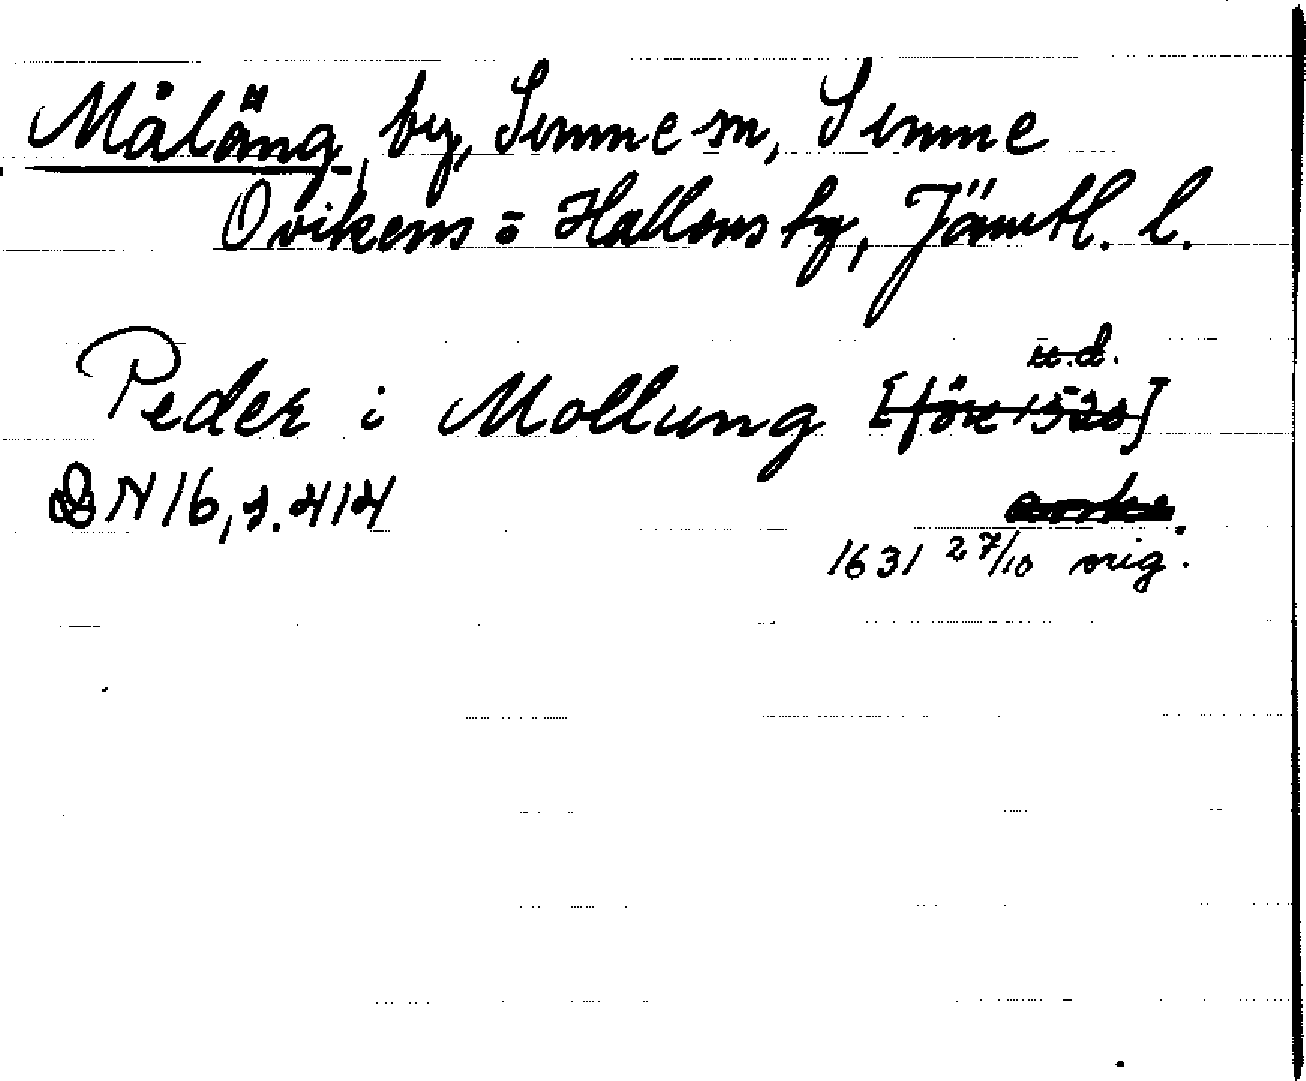 Måläng, by, Sunne sn, Sunne
Ovikens o Hallens tg, Jämtl. l.
u.d.
Peder i Mollung [före 1520]
DN 16, s. 414
avskr.
1631 27/10 sig.